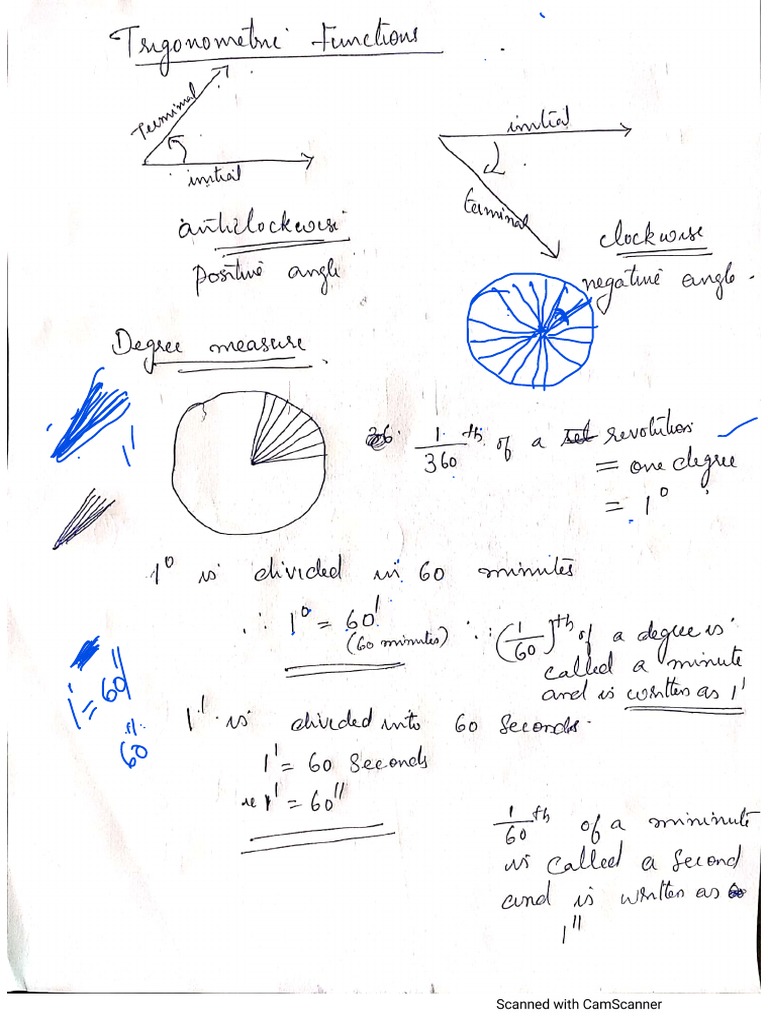 Trigonometric Functions
Terminal
initial
initial
terminal
anticlockwise
positive angle
clockwise
negative angle.
Degree measure
1/360 th of a revolution
= one degree
= 1°
1'
1° is divided in 60 minutes
∴ 1° = 60'
(60 minutes)
∵ (1/60)th of a degree is
called a minute
and is written as 1'
1' = 60"
60
1' is divided into 60 seconds.
1' = 60 seconds
ie 1' = 60"
1/60 th of a mininute
is called a second
and is written as
1"
Scanned with CamScanner